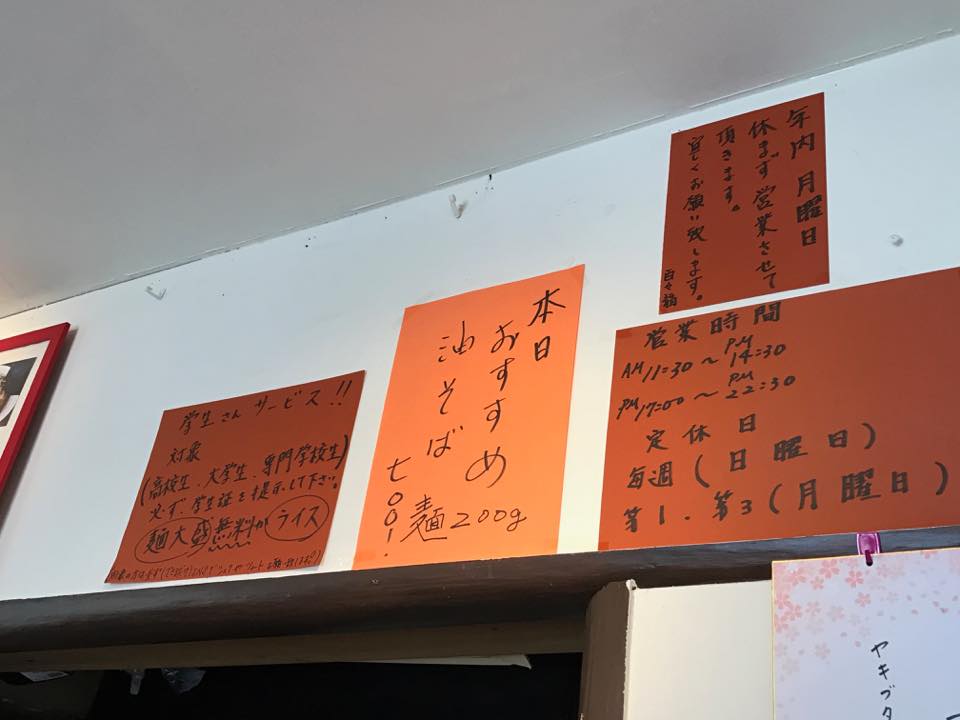 年内月曜日
休まず営業させて
頂きます。
宜しくお願い致します。
百々福
営業時間
AM11:30～PM14:30
PM17:00～PM22:30
定休日
毎週(日曜日)
第1.第3(月曜日)
本日
おすすめ
油そば
七〇〇!
麺200g
学生さんサービス!!
対象
(高校生.大学生.専門学校生)
必ず、学生証を提示して下さい。
麺大盛無料かライス
ヤキブタ